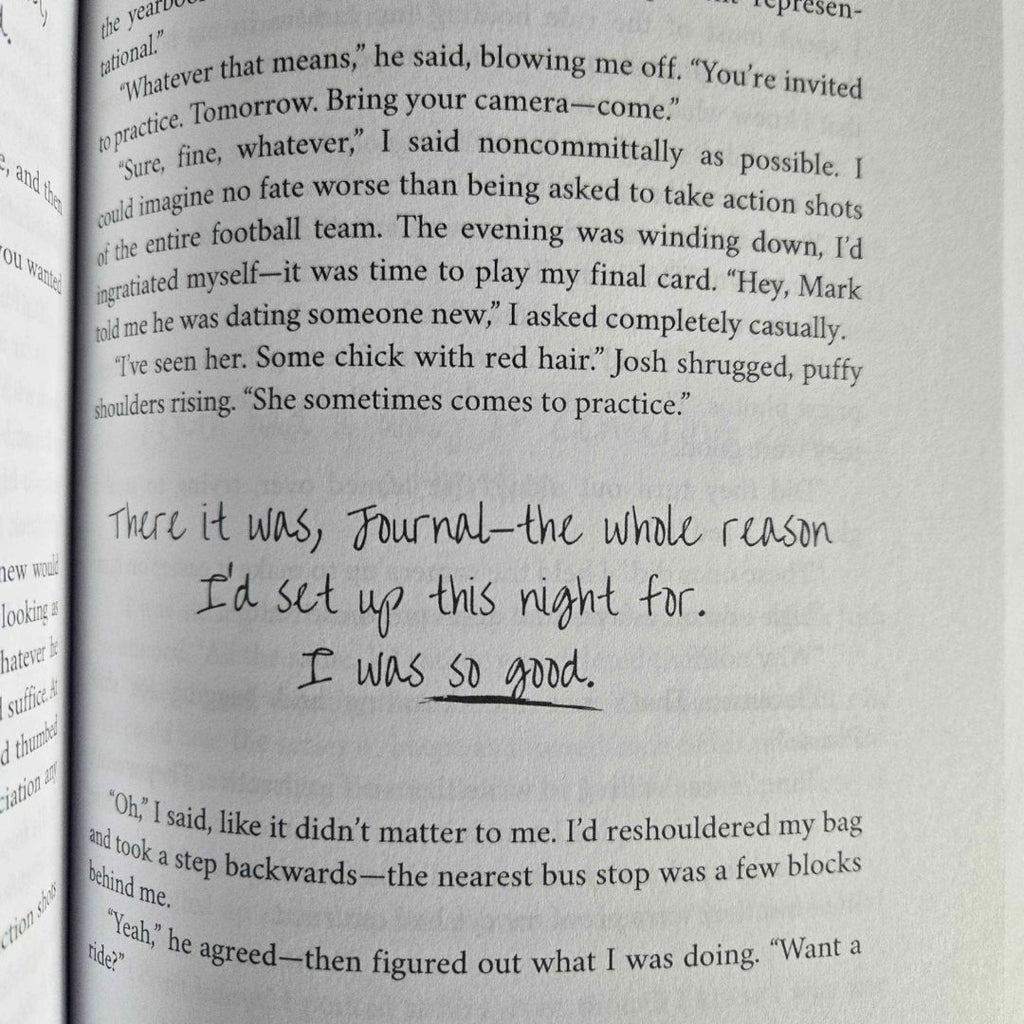 the
represen-
tational."
"Whatever that means," he said, blowing me off. "You're invited
to practice. Tomorrow. Bring your camera—come."
"Sure, fine, whatever," I said noncommittally as possible. I
could imagine no fate worse than being asked to take action shots
of the entire football team. The evening was winding down, I'd
ingratiated myself—it was time to play my final card. "Hey, Mark
told me he was dating someone new," I asked completely casually.
"I've seen her. Some chick with red hair." Josh shrugged, puffy
shoulders rising. "She sometimes comes to practice."
There it was, Journal—the whole reason
I'd set up this night for.
I was so good.
"Oh," I said, like it didn't matter to me. I'd reshouldered my bag
and took a step backwards—the nearest bus stop was a few blocks
behind me.
"Yeah," he agreed—then figured out what I was doing. "Want a
ride?"